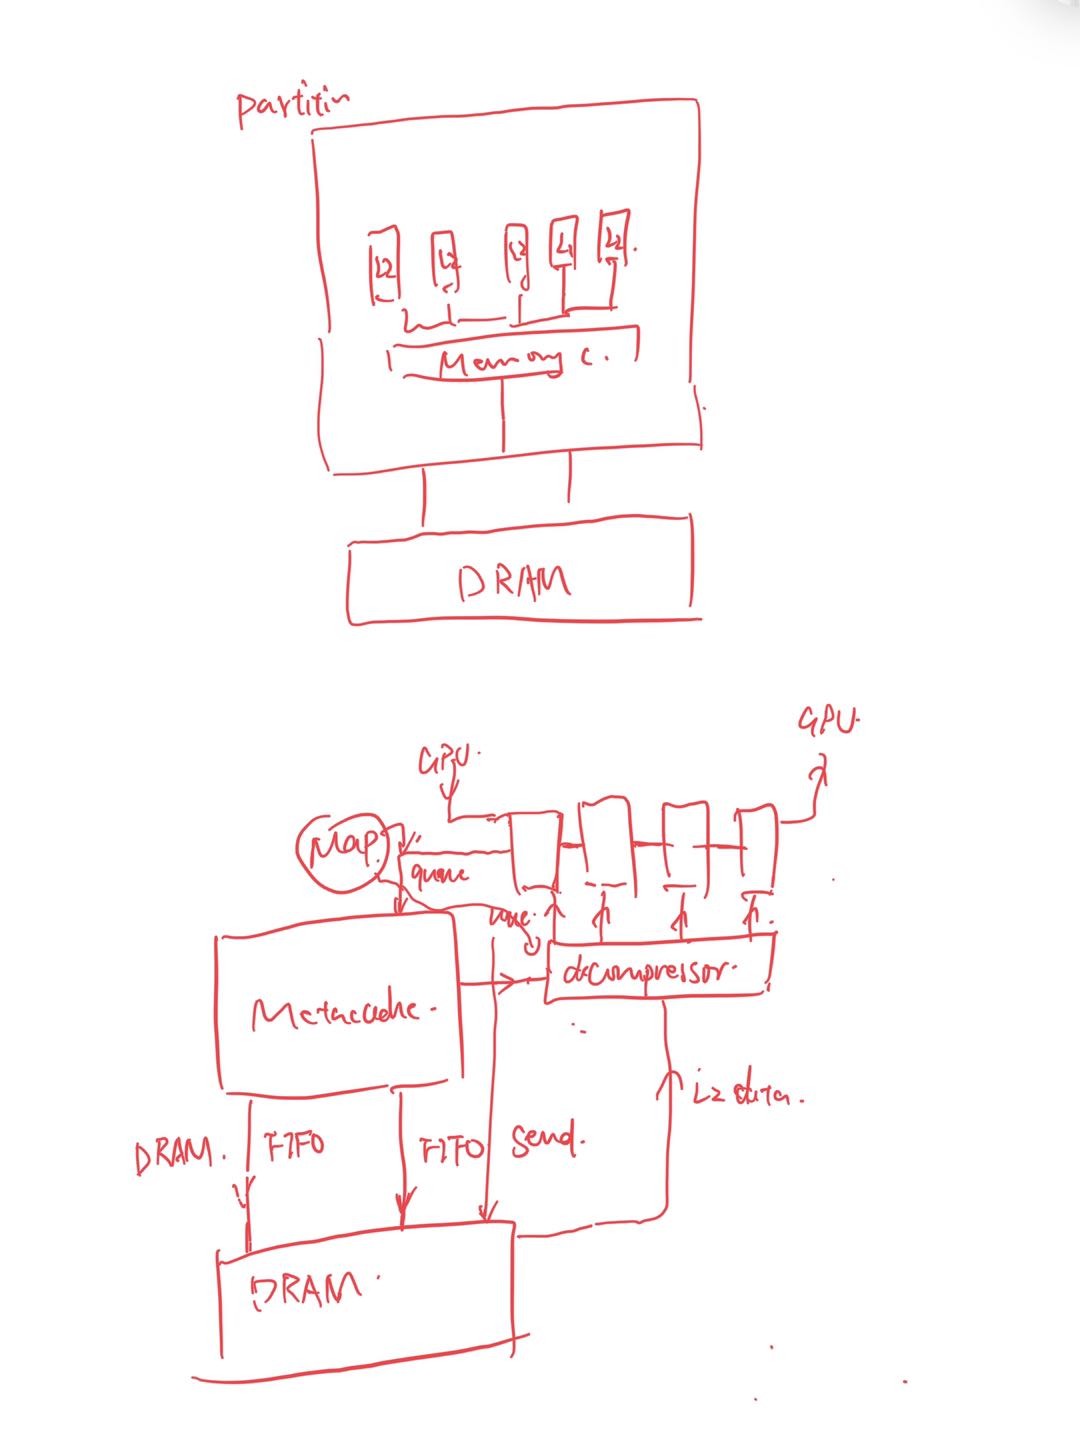 partitin
L2
L2
L2
L2
L2
Memory C.
DRAM
GPU.
GPU.
Map.
queue
decompressor.
Metacache.
L2 data.
DRAM.
FIFO
FIFO
Send.
DRAM.